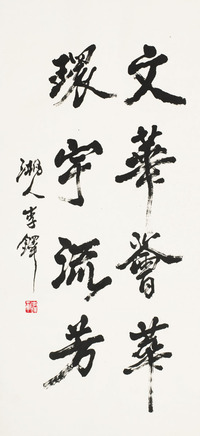 文華薈萃
環宇流芳
湘人李鐸